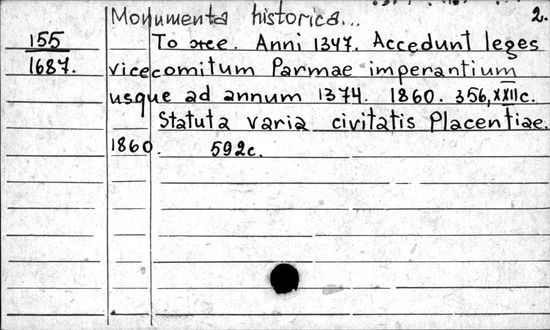 Monumenta historica... 2.
155 To же. Anni 1347. Accedunt leges
1687. vicecomitum Parmae imperantium
usque ad annum 1374. 1860. 356, XXII c.
Statuta varia civitatis Placentiae.
1860. 592 c.